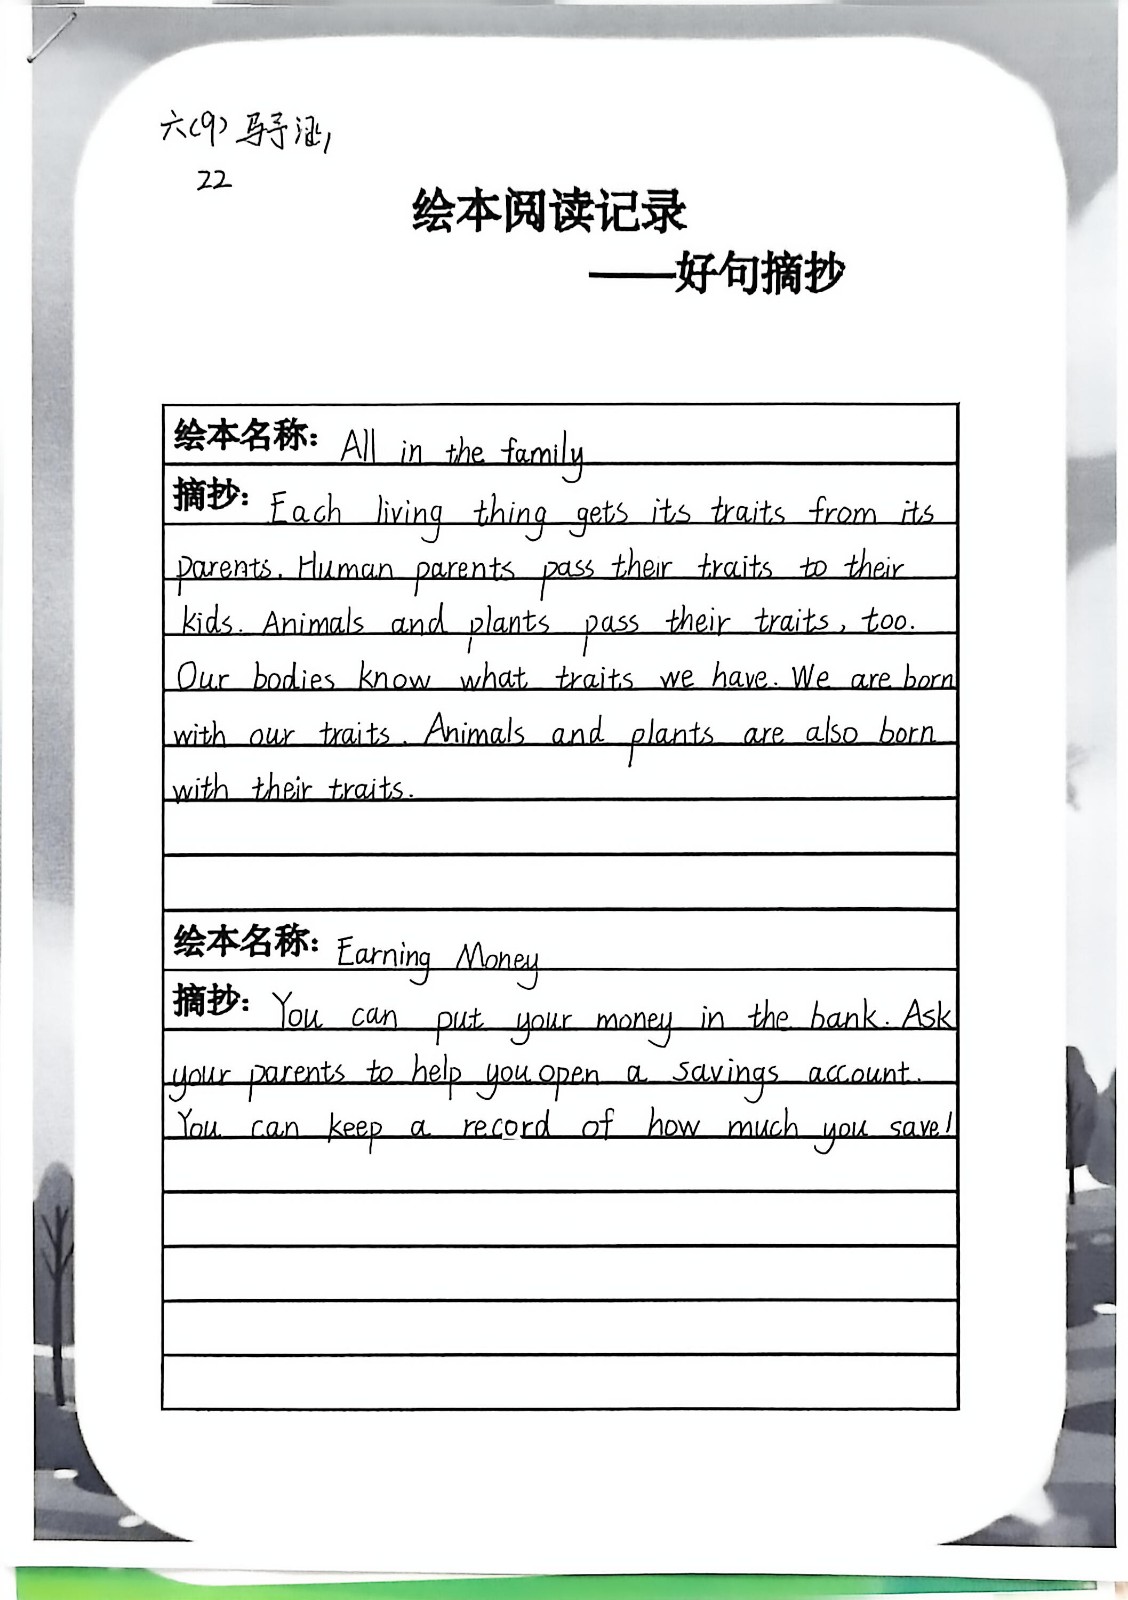 六(9) 马子涵
22
绘本阅读记录
——好句摘抄
绘本名称: All in the family
摘抄: Each living thing gets its traits from its
parents. Human parents pass their traits to their
kids. Animals and plants pass their traits, too.
Our bodies know what traits we have. We are born
with our traits. Animals and plants are also born
with their traits.
绘本名称: Earning Money
摘抄: You can put your money in the bank. Ask
your parents to help you open a savings account.
You can keep a record of how much you save!